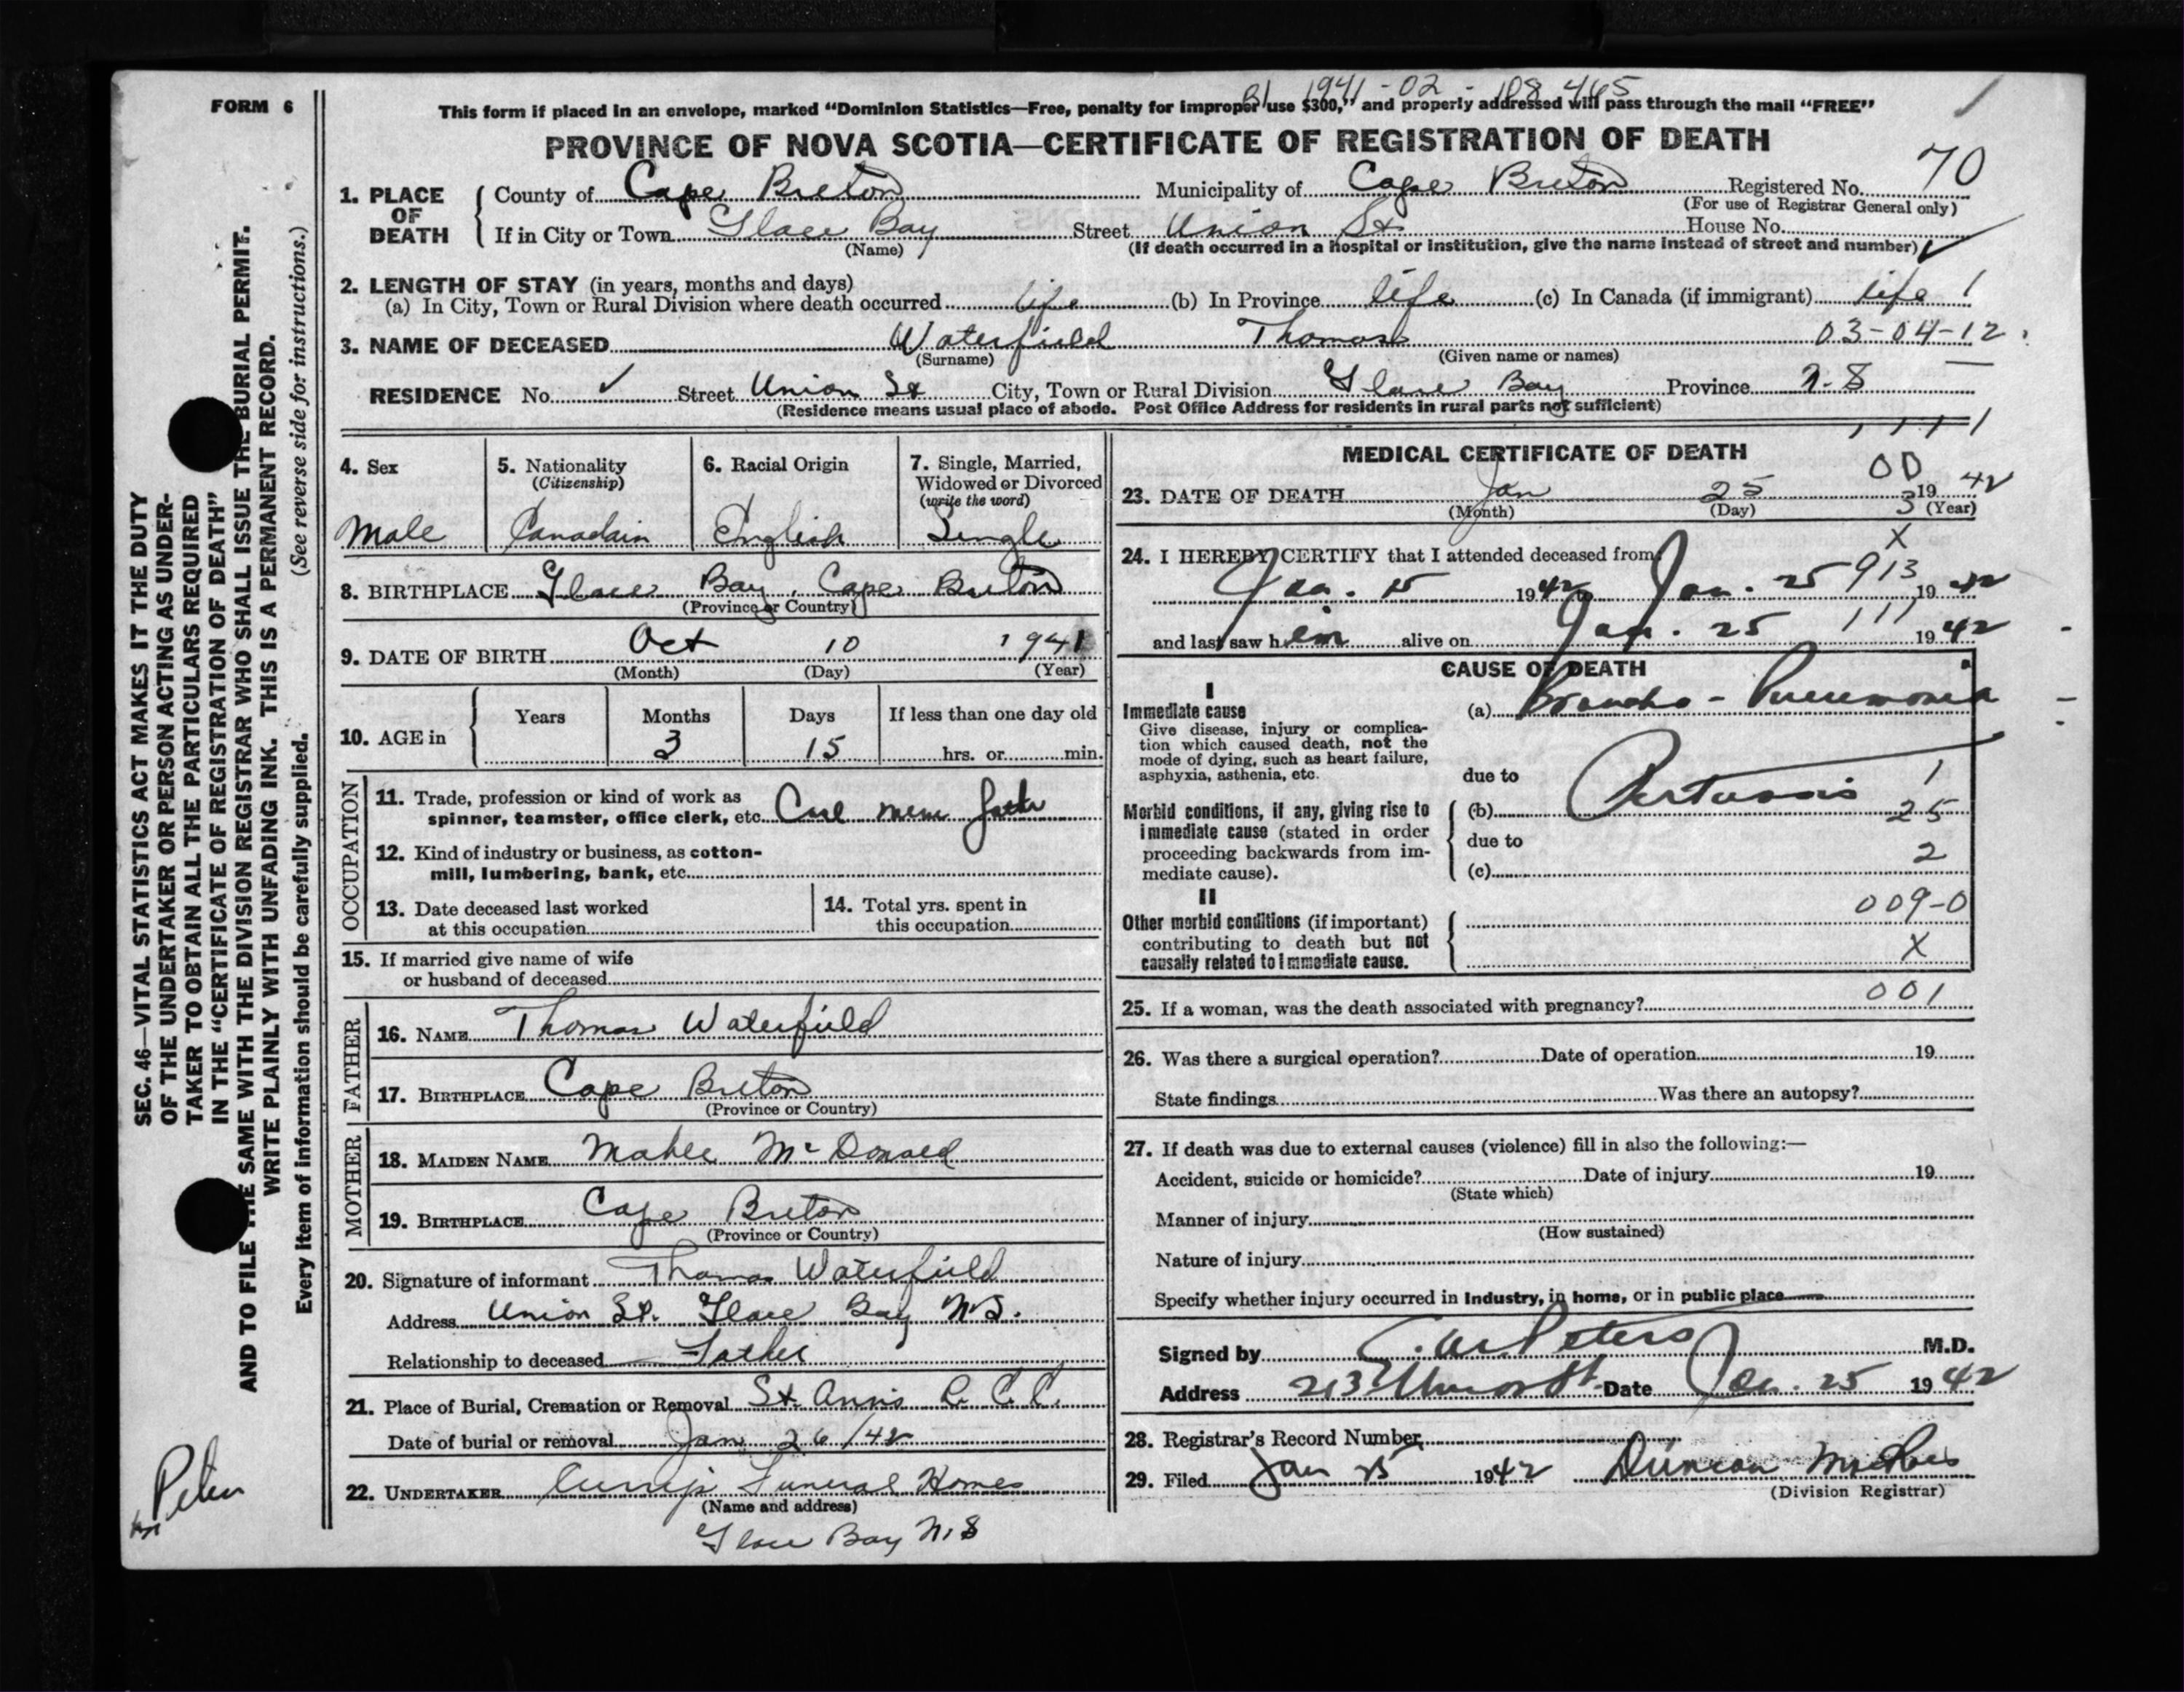 FORM 6
BI 1941-02-108 465
This form if placed in an envelope, marked “Dominion Statistics—Free, penalty for improper use $300,” and properly addressed will pass through the mail “FREE”
PROVINCE OF NOVA SCOTIA—CERTIFICATE OF REGISTRATION OF DEATH
1. PLACE OF DEATH { County of Cape Breton Municipality of Cape Breton Registered No. 70
(For use of Registrar General only)
If in City or Town Glace Bay Street Union St House No.
(Name) (If death occurred in a hospital or institution, give the name instead of street and number)
2. LENGTH OF STAY (in years, months and days)
(a) In City, Town or Rural Division where death occurred life (b) In Province life (c) In Canada (if immigrant) life 1
3. NAME OF DECEASED Waterfield Thomas 03-04-12
(Surname) (Given name or names)
RESIDENCE No. ✓ Street Union St City, Town or Rural Division Glace Bay Province N.S
(Residence means usual place of abode. Post Office Address for residents in rural parts not sufficient)
4. Sex 5. Nationality (Citizenship) 6. Racial Origin 7. Single, Married, Widowed or Divorced (write the word)
Male Canadain English Single
8. BIRTHPLACE Glace Bay, Cape Breton
(Province or Country)
9. DATE OF BIRTH Oct 10 1941
(Month) (Day) (Year)
10. AGE in { Years Months Days If less than one day old
3 15 hrs. or min.
OCCUPATION
11. Trade, profession or kind of work as
spinner, teamster, office clerk, etc.
12. Kind of industry or business, as cotton-
mill, lumbering, bank, etc.
13. Date deceased last worked
at this occupation
14. Total yrs. spent in
this occupation
15. If married give name of wife
or husband of deceased
FATHER
16. NAME Thomas Waterfield
17. BIRTHPLACE Cape Breton
(Province or Country)
MOTHER
18. MAIDEN NAME Mc Donald
19. BIRTHPLACE Cape Breton
(Province or Country)
20. Signature of informant Thomas Waterfield
Address Union St. Glace Bay N.S.
Relationship to deceased Father
21. Place of Burial, Cremation or Removal St. Anns R.C.C.
Date of burial or removal Jan 26/42
22. UNDERTAKER Funeral Homes
(Name and address)
Glace Bay N.S
MEDICAL CERTIFICATE OF DEATH
1 1 1 1
OD
23. DATE OF DEATH Jan 25 1942
(Month) (Day) 3 (Year)
X
24. I HEREBY CERTIFY that I attended deceased from
Jan. 15 1942 Jan. 25 913 1942
and last saw him alive on Jan. 25 111 1942
CAUSE OF DEATH
I
Immediate cause
Give disease, injury or complica-
tion which caused death, not the
mode of dying, such as heart failure,
asphyxia, asthenia, etc.
(a) Broncho-Pneumonia
due to
Morbid conditions, if any, giving rise to
immediate cause (stated in order
proceeding backwards from im-
mediate cause).
(b) Pertussis
1
25
due to
2
(c)
II
Other morbid conditions (if important)
contributing to death but not
causally related to immediate cause.
009-0
X
25. If a woman, was the death associated with pregnancy? 001
26. Was there a surgical operation? Date of operation 19
State findings Was there an autopsy?
27. If death was due to external causes (violence) fill in also the following:—
Accident, suicide or homicide? Date of injury 19
(State which)
Manner of injury
(How sustained)
Nature of injury
Specify whether injury occurred in Industry, in home, or in public place
Signed by Peters M.D.
Address Date Jan. 25 1942
28. Registrar's Record Number
29. Filed Jan 25 1942 Duncan
(Division Registrar)
SEC. 46—VITAL STATISTICS ACT MAKES IT THE DUTY
OF THE UNDERTAKER OR PERSON ACTING AS UNDER-
TAKER TO OBTAIN ALL THE PARTICULARS REQUIRED
IN THE “CERTIFICATE OF REGISTRATION OF DEATH”
AND TO FILE THE SAME WITH THE DIVISION REGISTRAR WHO SHALL ISSUE THE BURIAL PERMIT.
WRITE PLAINLY WITH UNFADING INK. THIS IS A PERMANENT RECORD.
Every item of information should be carefully supplied. (See reverse side for instructions.)